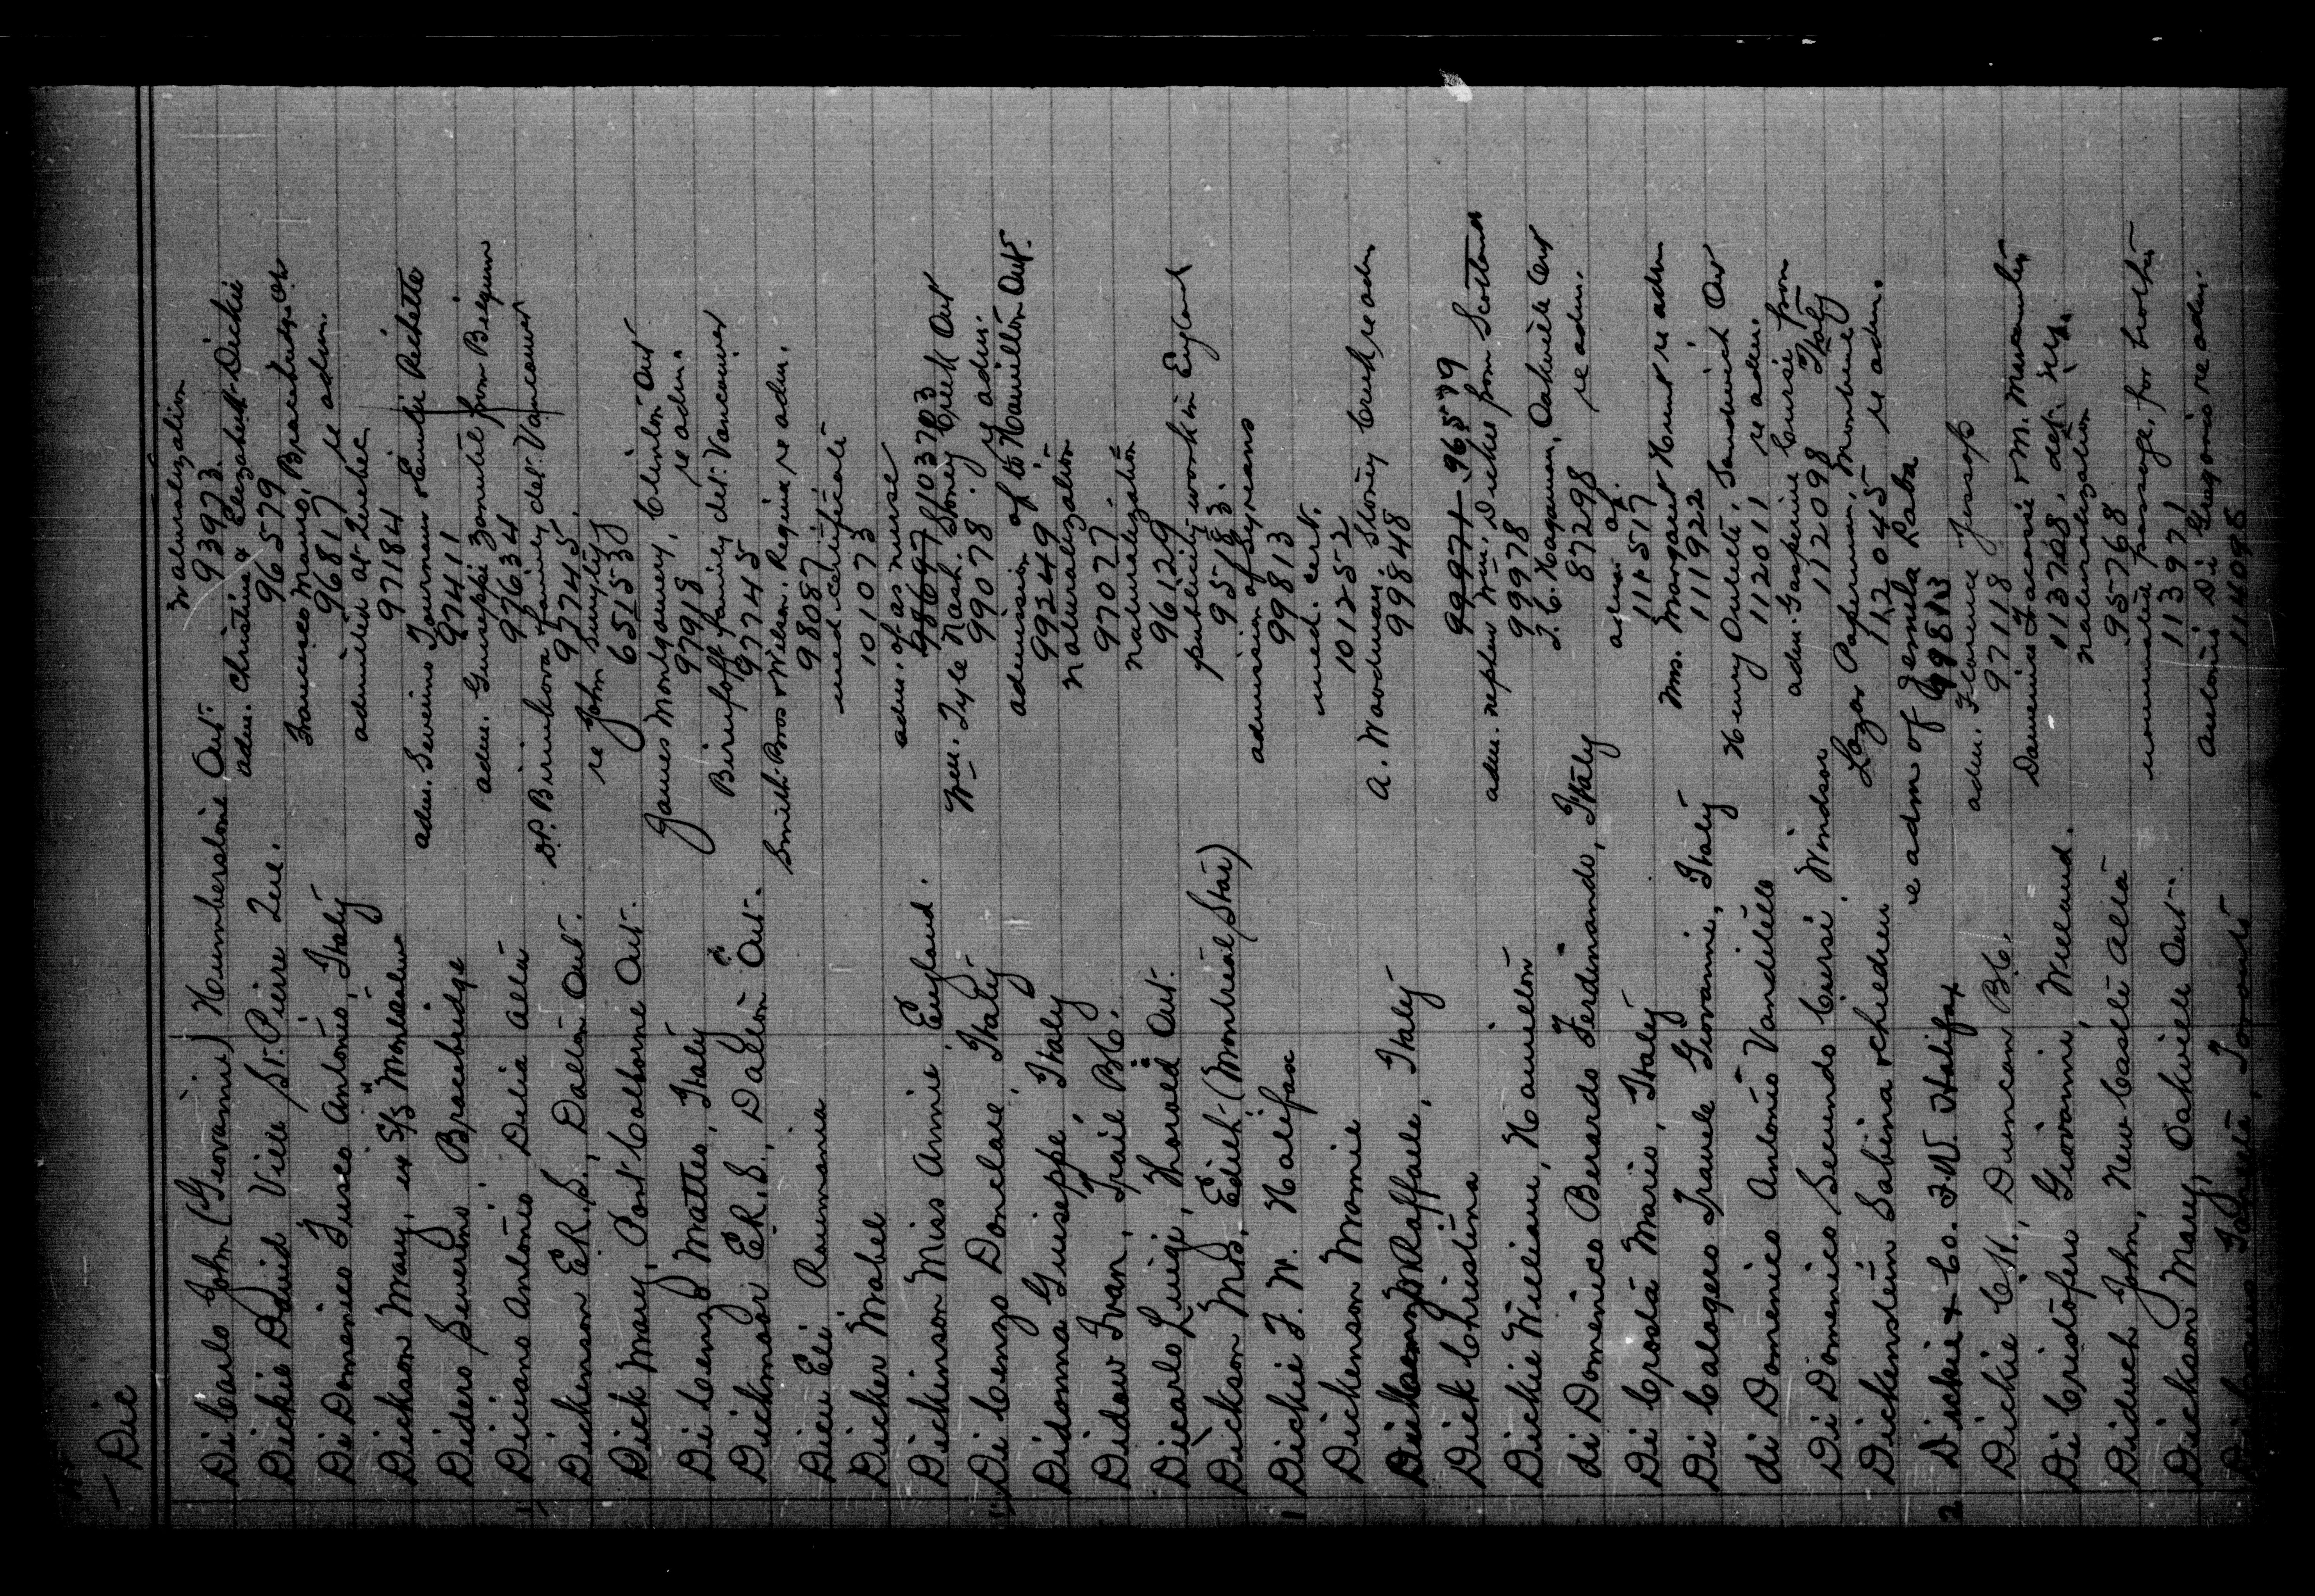 Dic
naturalization
Di Carlo John (Giovanni) Humberstone Ont. 93973
adm. Christina & Elizabeth Dickie
Dickie David Ville St. Pierre Que. 96579
Francesco Manno, Bracebridge Ont
re adm.
Di Domenico Fusco Antonio, Italy 96817
admitted at Quebec
Dickson Mary, ex S/S Montcalm 97184
adm. Severino Tourneur & Emilie Pichette
Didero Severino Bracebridge 97411
adm. Guiseppi Zanutil from Belgium
Diccano Antonio Delia Alta 97634
D.P. Birinhova family det. Vancouver
Dickenson E.R.S., Dalton Ont. 97745
re John Smylty
Dick Mary, Port Colborne Ont. 651530
James Montgomery, Clinton Ont
re adm.
Di Cenzo Matteo, Italy 97918
Birinfoff family det. Vancouver
Dickinson E.R.S., Dalton Ont. 97745
Smith Bros & Wilson. Regina re adm.
Dicu Eli Roumania 98087
med certificate
Dicker Mabel 101073
adm. of as nurse
Dickinson Miss Annie England. 98697 103703
Wm. Tyle Nash. Stoney Creek Ont
re adm.
Di Cenzo Donclae, Italy 99078
admission of to Hamilton Ont.
Didonna Guiseppe, Italy 99249
naturalization
Didow Ivan, Trail B.C. 97077
naturalization
Dicarlo Luigi, Thorold Ont. 96129
publicity work in England
Dickson Mrs. Edith (Montreal Star) 95183
admission of Syrians
Dickie F. W. Halifax 99813
med. cert.
Dickenson Momie 101252
A. Woodman. Stoney Creek re adm
Di Cenzo Raffaele, Italy 99848
Dick Christina 99971 96579
adm. nephew Wm. Dickie from Scotland
Dickie William, Hamilton 99978
J. C. Hagaman, Oakville Ont
re adm.
di Domenico Berardo Ferdinando, Italy 87298
adm of.
Di Crosta Mario, Italy 111517
Mrs. Margaret Hunt re adm
Di Calogero Traule Giovanni, Italy 111922
Henry Oullette, Sandwich Ont
re adm.
di Domenico Antonio Vanditello 112011
adm. Gasperine Cursie from
Italy
Di Domenico Secundo Cursi. Windsor 112098
Lazar Paperman, Montreal
re adm.
Dickenstein Sabina & children 112045
re adm of Jemila Raba
2 Dickie & Co. F.W. Halifax 99813
adm. Florence Jessop
Dickie C.H., Duncan B.C. 97118
Damerie Francois & M. Mercantier
det. St. J.
Di Cristofero Giovanni, Welland. 113728
naturalization
Diduch John, New Castle Alta 95768
nominated passage, for brother
Dickson Mary, Oakville Ont. 113971
Antonio Di Gregorio re adm.
Toronto 114095